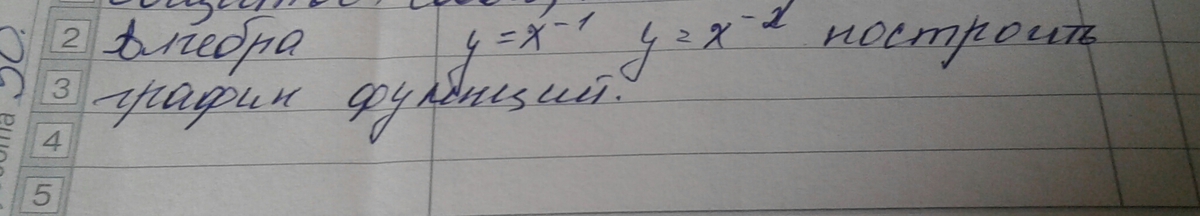 2 Алгебра y = x⁻¹ y = x⁻² построить
3 график функций.
4
5